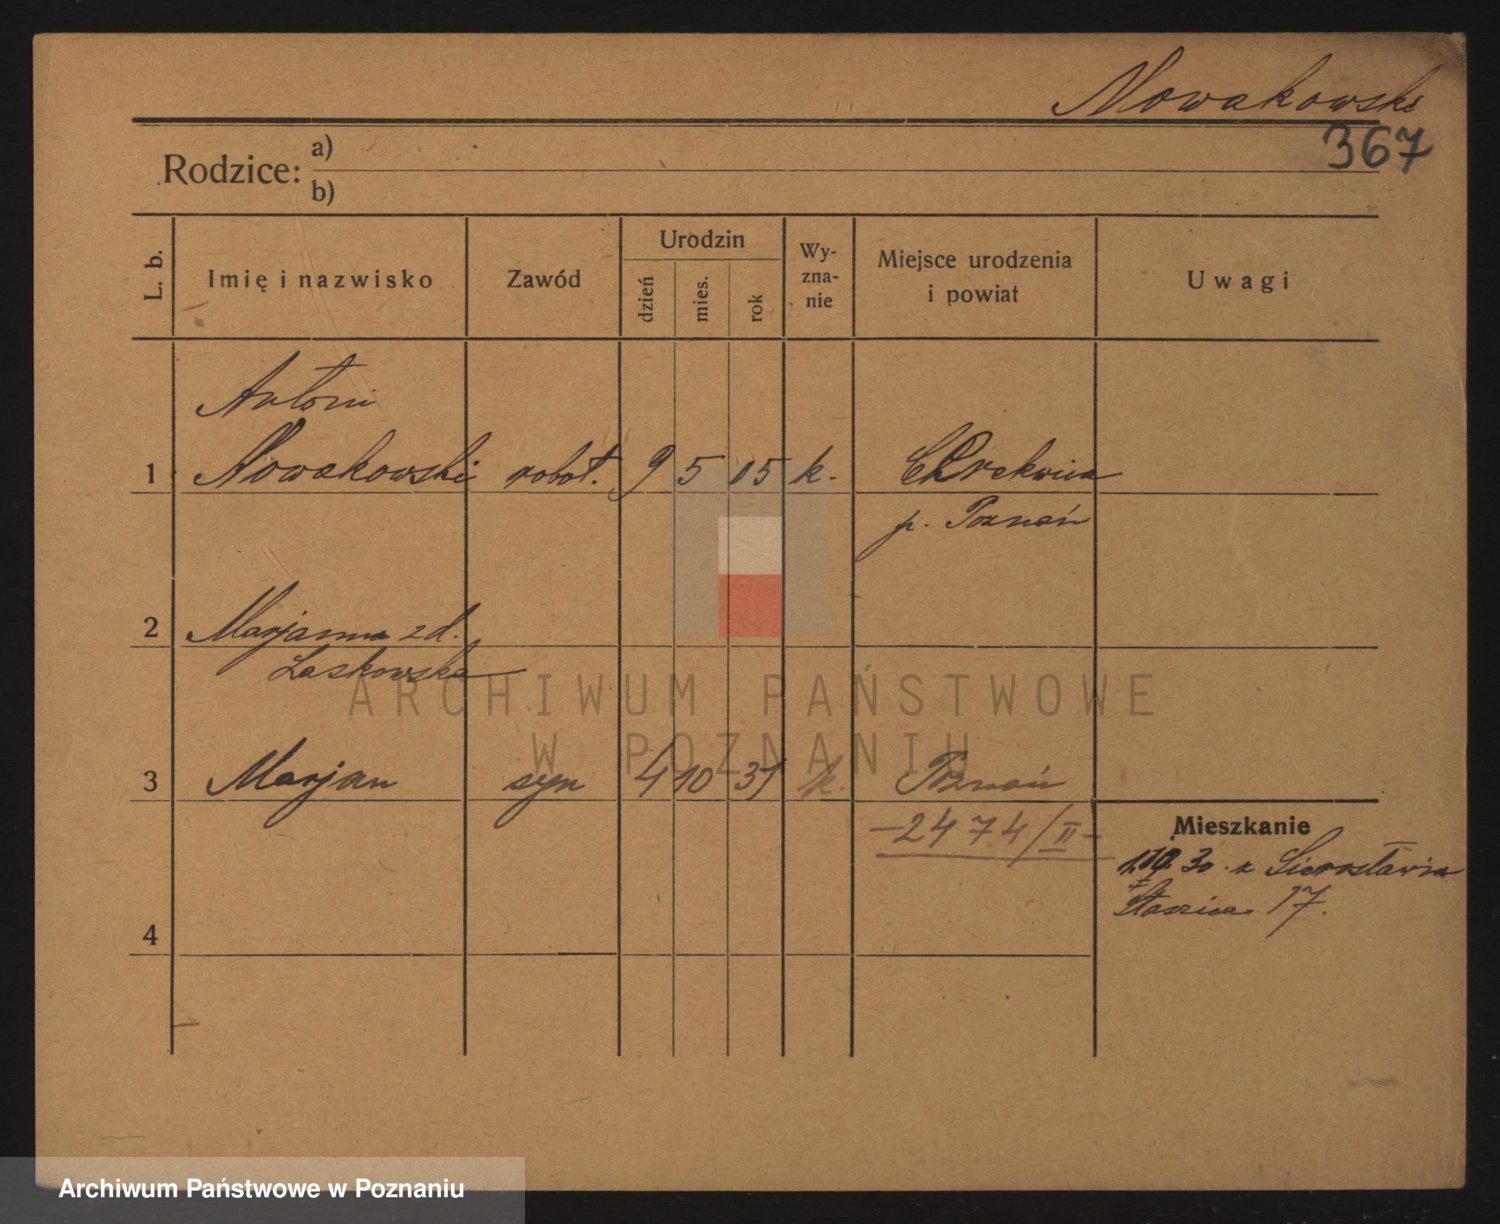 Nowakowski
367
Rodzice: a)
b)
L. b.
Imię i nazwisko
Zawód
Urodzin
dzień
mies.
rok
Wy-
zna-
nie
Miejsce urodzenia
i powiat
Uwagi
Antoni
1 Nowakowski robot. 9 5 05 k.
p. Poznań
2 Marjanna z d.
Laskowska
3 Marjan syn 4 10 31 k. Poznań
-2474/II-
Mieszkanie
30. z Sierosławia
Staszica 17.
4
ARCHIWUM PAŃSTWOWE
W POZNANIU
Archiwum Państwowe w Poznaniu